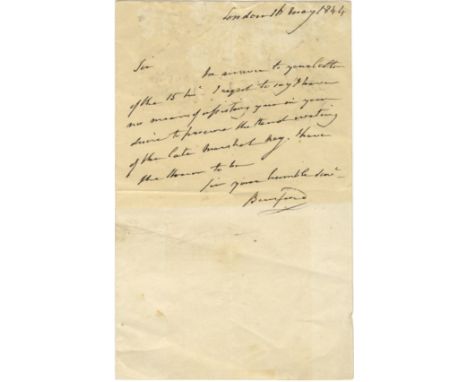 London 18 May 1844
Sir
In answer to your letter
of the 15 ins. I regret to say I have
no means of assisting you in your
desire to procure the hand writing
of the late Marshal Ney. I have
the Honor to be
Sir your humble serv.
Beresford